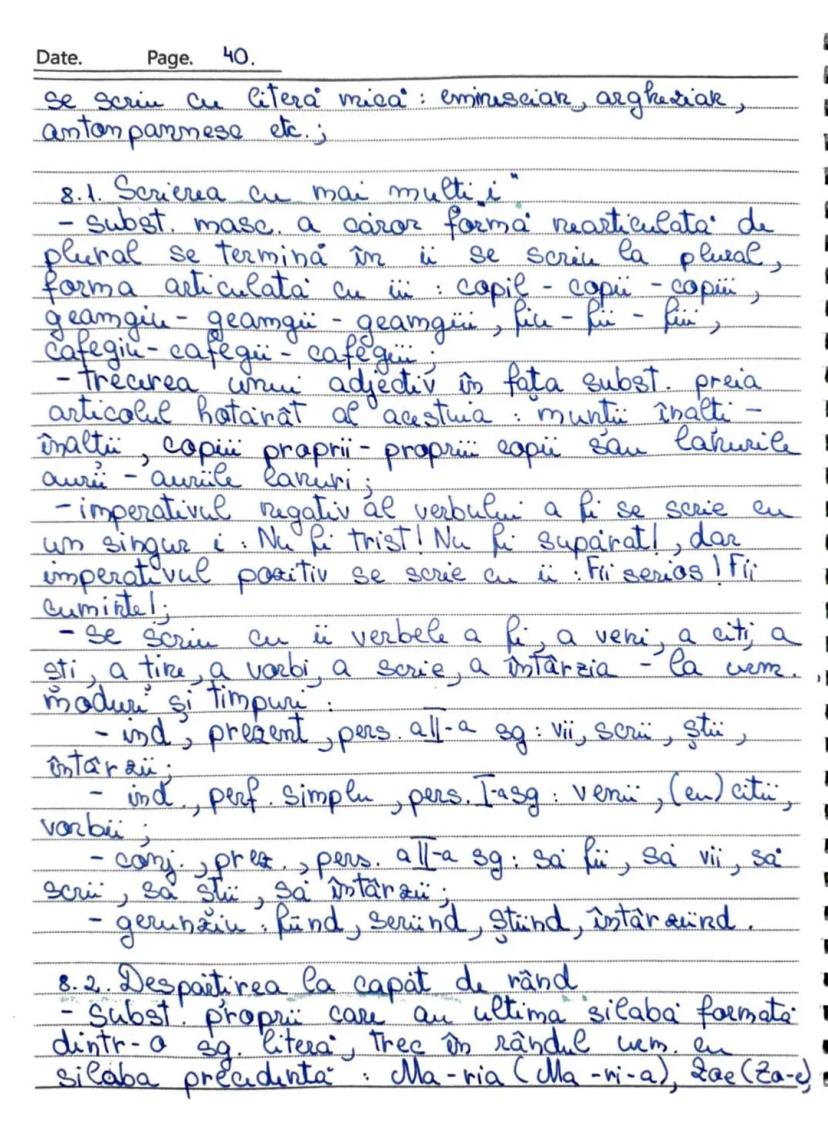 Date. Page. 40.
se scriu cu literă mică : eminescian, arghezian,
antonpannesc etc.;
8.1. Scrierea cu mai mulți „i"
- subst. masc. a căror formă nearticulată de
plural se termină în ii se scriu la plural,
forma articulată cu iii : copil - copii - copiii,
geamgiu - geamgii - geamgiii, fiu - fii - fiii,
cafegiu - cafegii - cafegiii;
- trecerea unui adjectiv în fața subst. preia
articolul hotărât al acestuia : munții înalți -
înalții, copiii proprii - propriii copii sau lanurile
aurii - auriile lanuri;
- imperativul negativ al verbului a fi se scrie cu
un singur i : Nu fi trist! Nu fi supărat!, dar
imperativul pozitiv se scrie cu ii : Fii serios! Fii
cuminte!;
- se scriu cu ii verbele a fi, a veni, a citi, a
ști, a ține, a vorbi, a scrie, a întârzia - la urm.
moduri și timpuri :
- ind, prezent, pers. a II-a sg : vii, scrii, știi,
întârzii;
- ind., perf. simplu, pers. I-a sg : venii, (eu) citii,
vorbii;
- conj., prez., pers. a II-a sg : să fii, să vii, să
scrii, să știi, să întârzii;
- gerunziu : fiind, scriind, știind, întârziind.
8.2. Despărțirea la capăt de rând
- Subst. proprii care au ultima silabă formată
dintr-o sg. literă, trec în rândul urm. cu
silaba precedentă : Ma-ria (Ma-ri-a), Zae (Za-e)